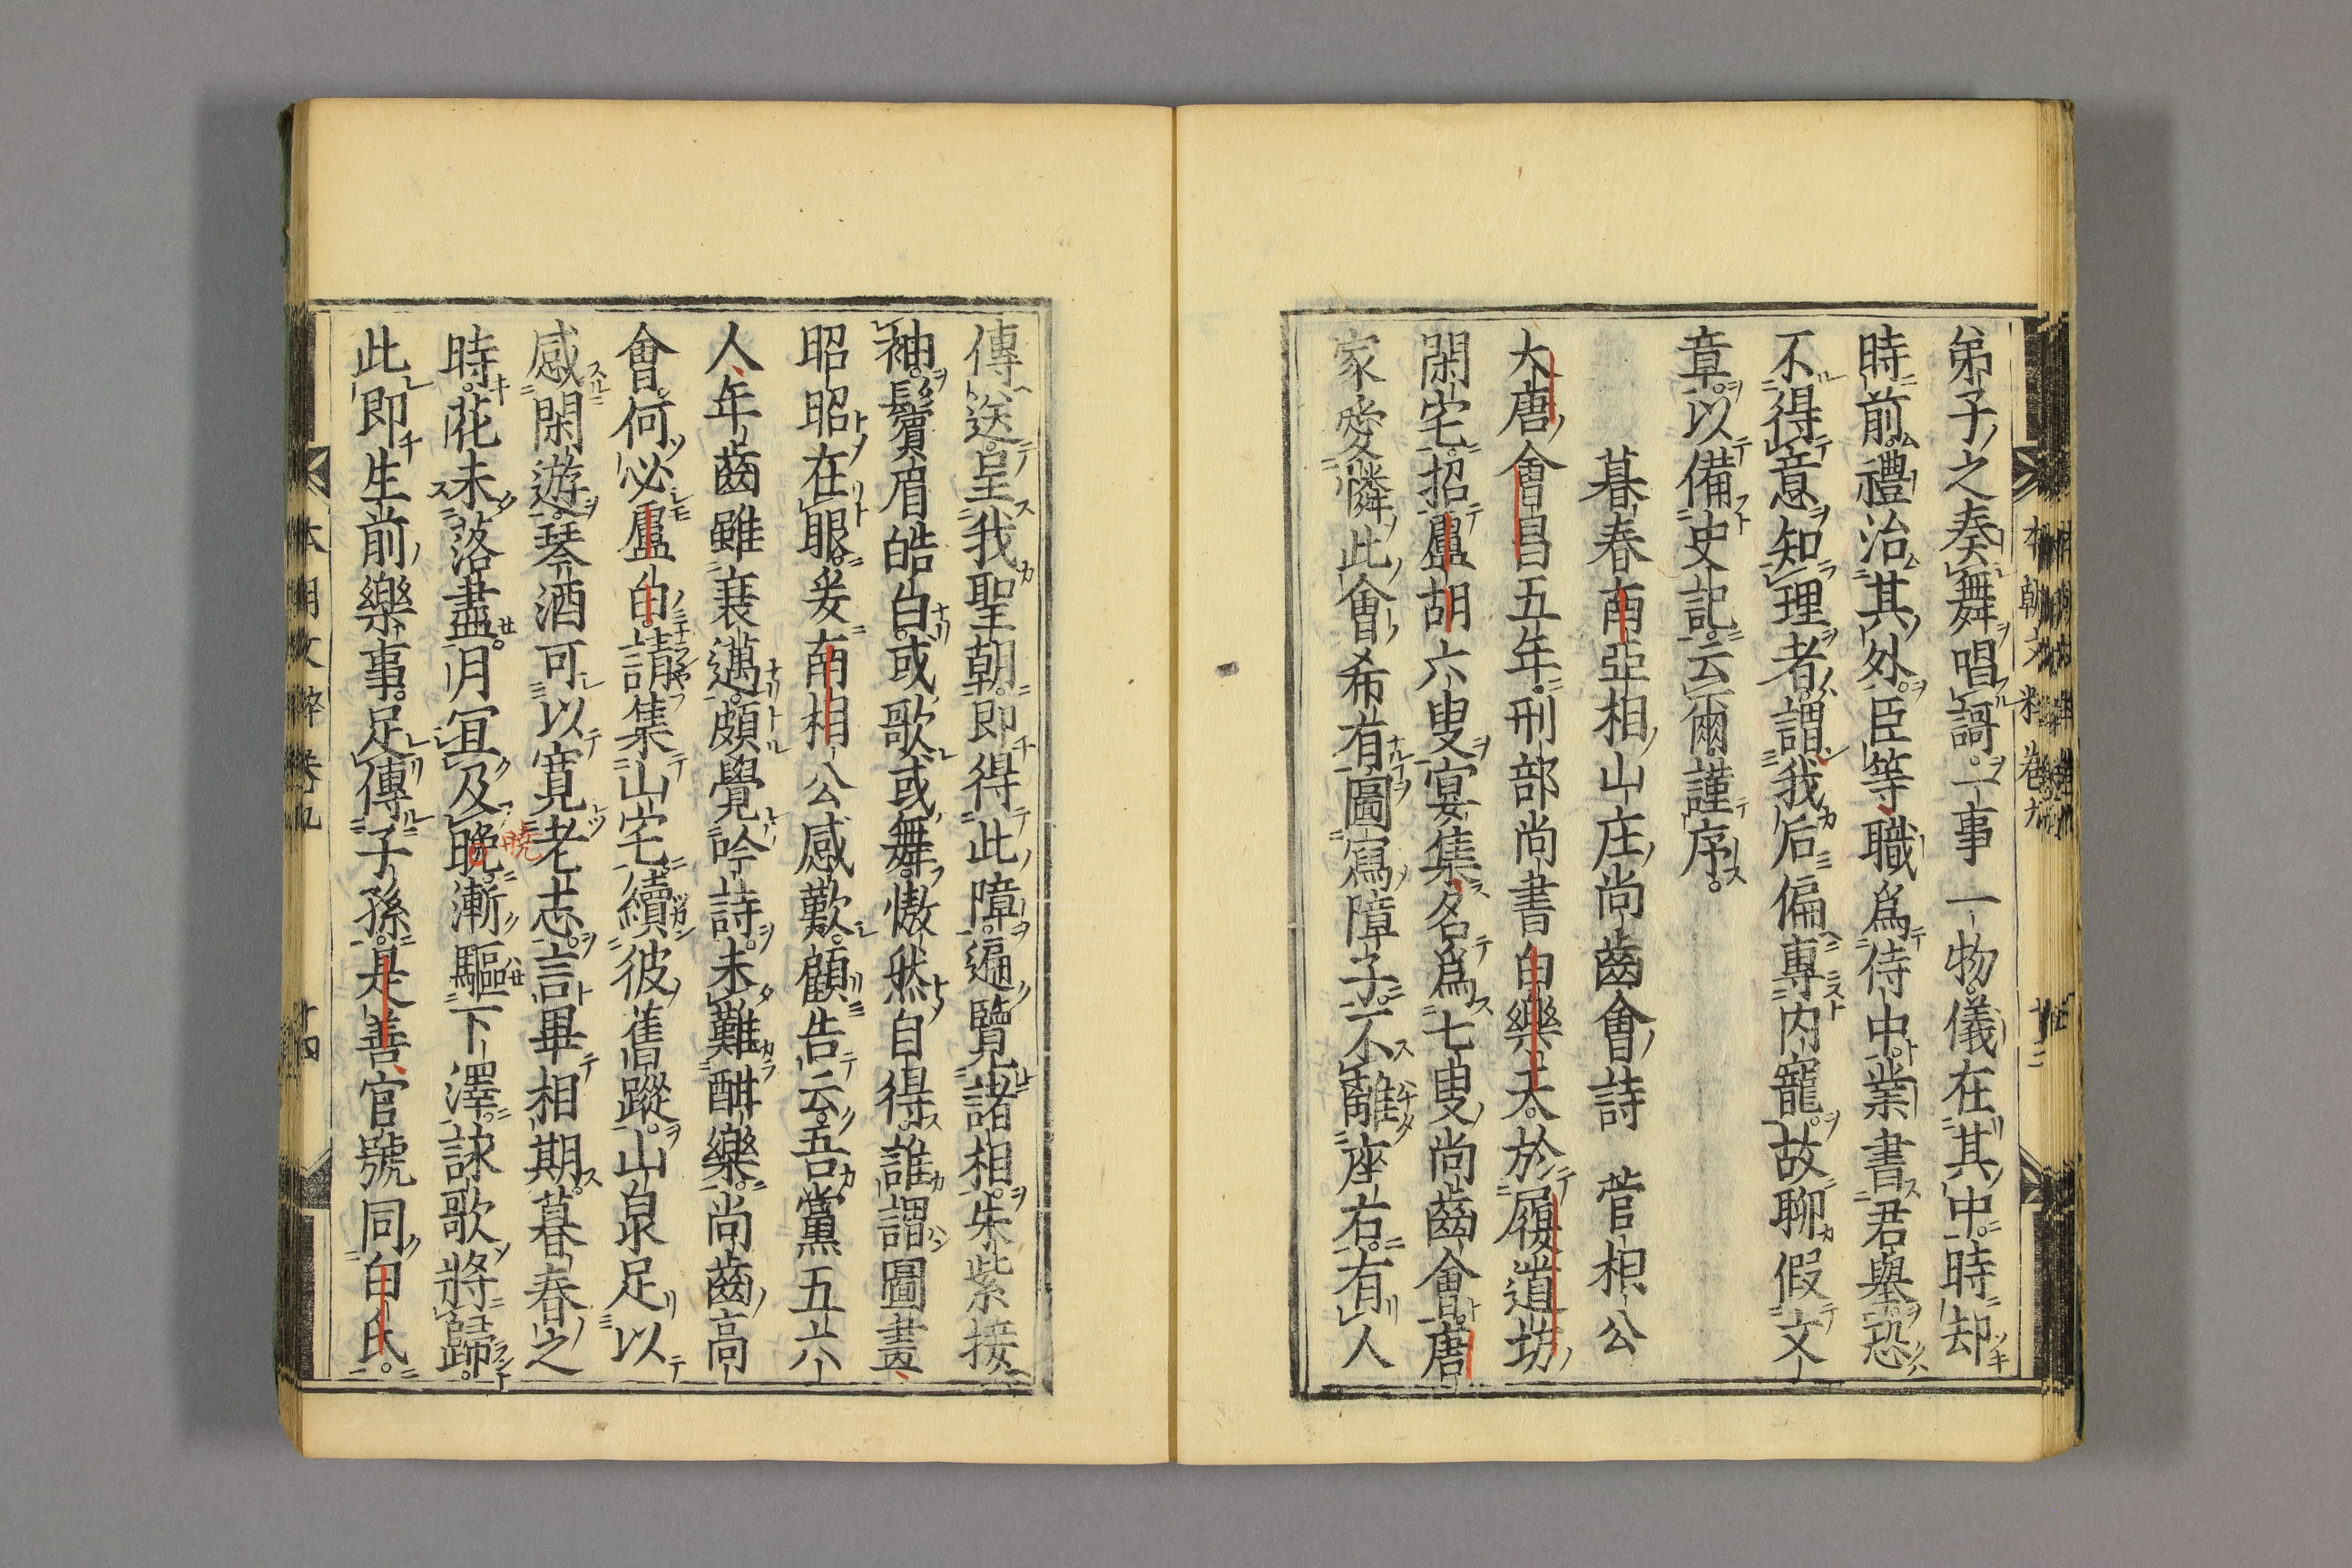 弟子之奏舞唱謌一事一物儀在其中時却
時前禮治其外臣等職爲侍中業書君擧恐
不得意知理者謂我后偏專内寵故聊假文
章以備史記云爾謹序
暮春南亞相山庄尚齒會詩 菅相公
大唐會昌五年刑部尚書白樂天於履道坊
閑宅招盧胡六叟宴集名爲七叟尚齒會唐
家愛憐此會希有圖寫障子不離座右有人
傳送呈我聖朝即得此障遍覽諸相朱紫接
袖鬢眉皓白或歌或舞慠然自得誰謂圖畫
昭昭在眼爰南相公感歎顧告云吾黨五六
人年齒雖衰邁頗覺吟詩未難酣樂尚齒高
會何必盧白請集山宅續彼舊蹤山泉足以
感閑遊琴酒可以寛老志言畢相期暮春之
時花未落盡月宜及晩漸驅下澤詠歌將歸
曉
此即生前樂事足傳子孫是善官號同白氏
本朝文粹卷九
本朝文粹卷九 十四